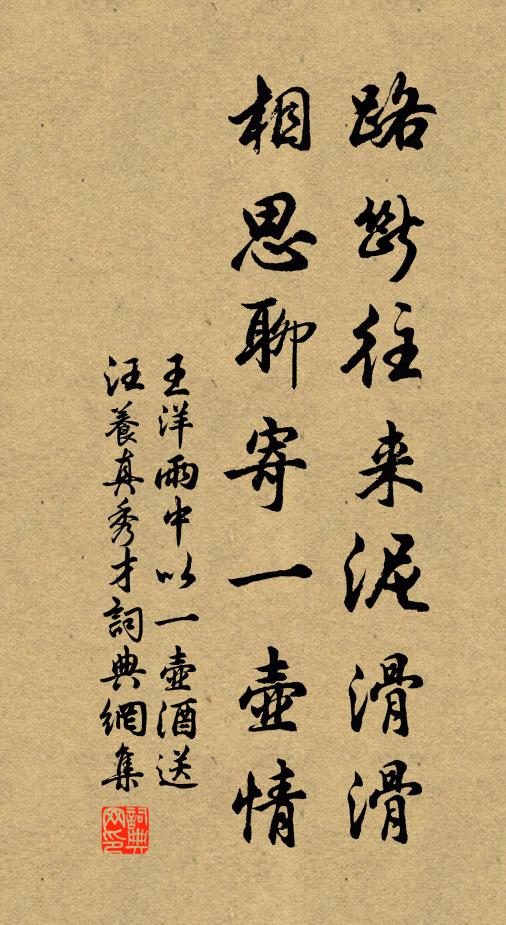 路斷往来泥滑滑
相思聊寄一壺情
王洋雨中以一壺酒送
汪養真秀才詞典網集
詞典網印